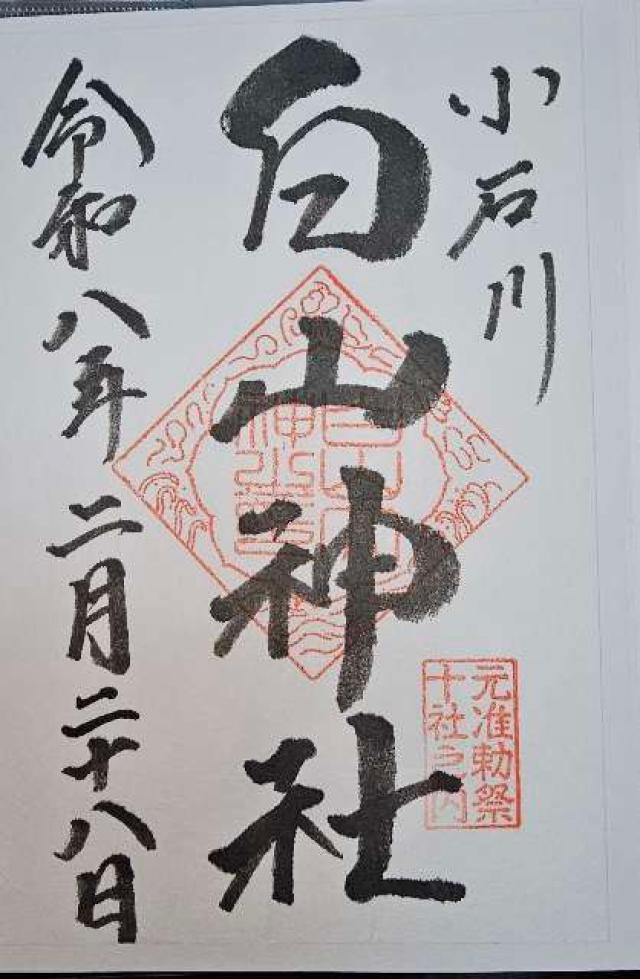 小石川
白山神社
元准勅祭
十社之内
令和八年二月二十八日